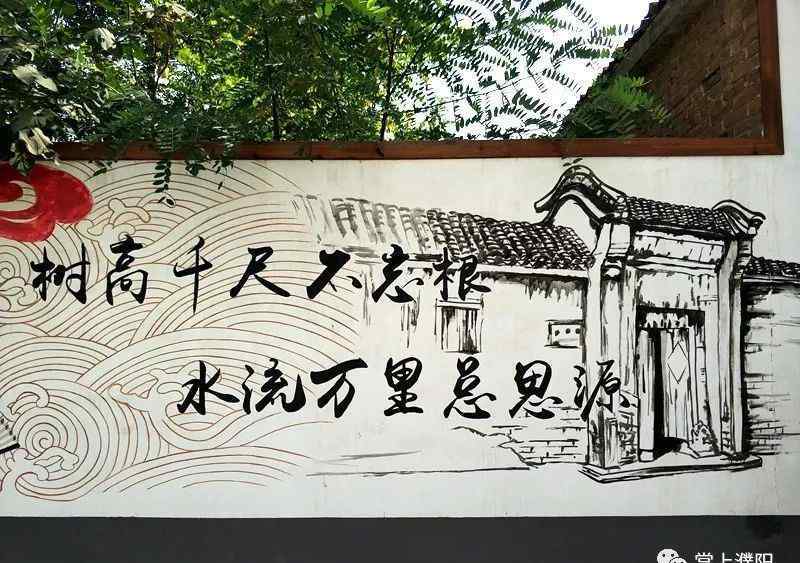 树高千尺不忘根
水流万里总思源
掌上濮阳